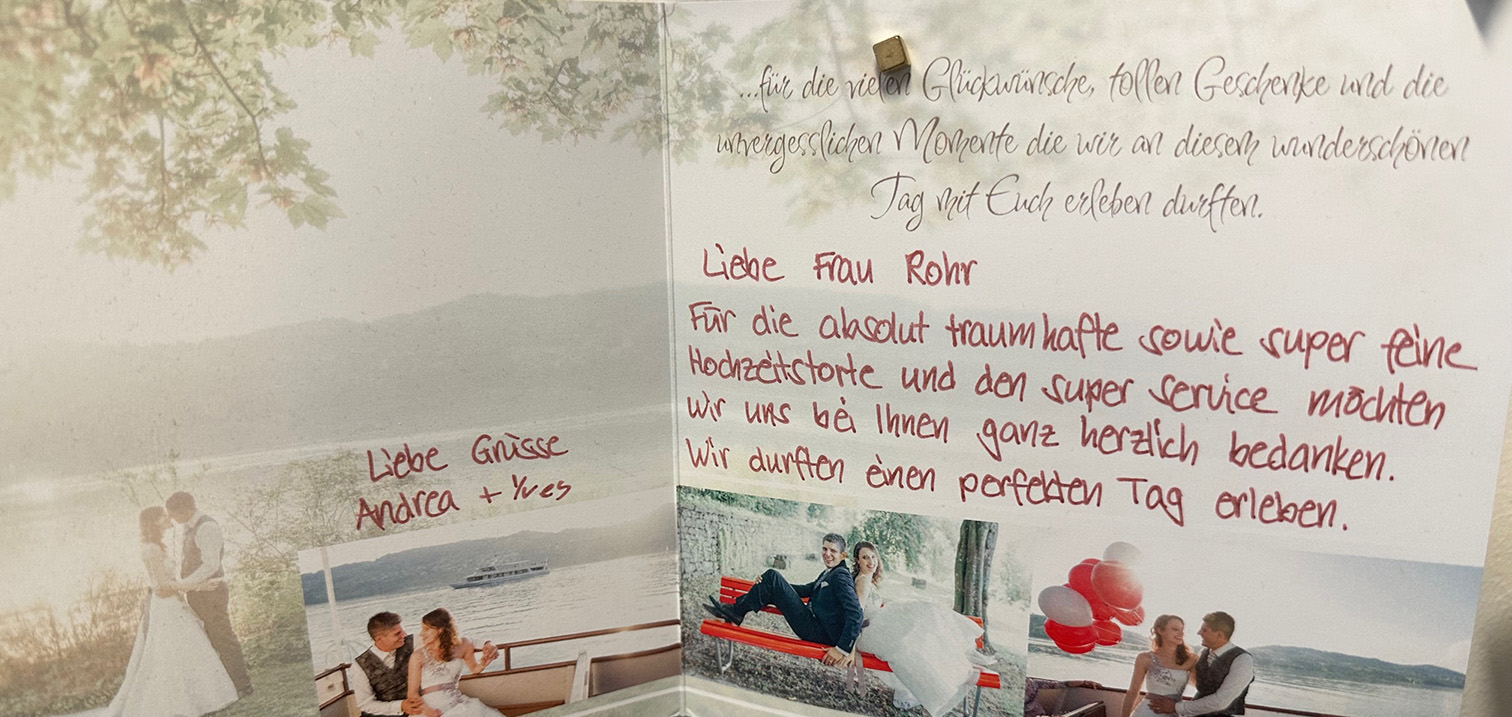 ...für die vielen Glückwünsche, tollen Geschenke und die
unvergesslichen Momente die wir an diesem wunderschönen
Tag mit Euch erleben durften.
Liebe Frau Rohr
Für die absolut traumhafte sowie super feine
Hochzeitstorte und den super service möchten
wir uns bei Ihnen ganz herzlich bedanken.
Wir durften einen perfekten Tag erleben.
Liebe Grüsse
Andrea + Yves